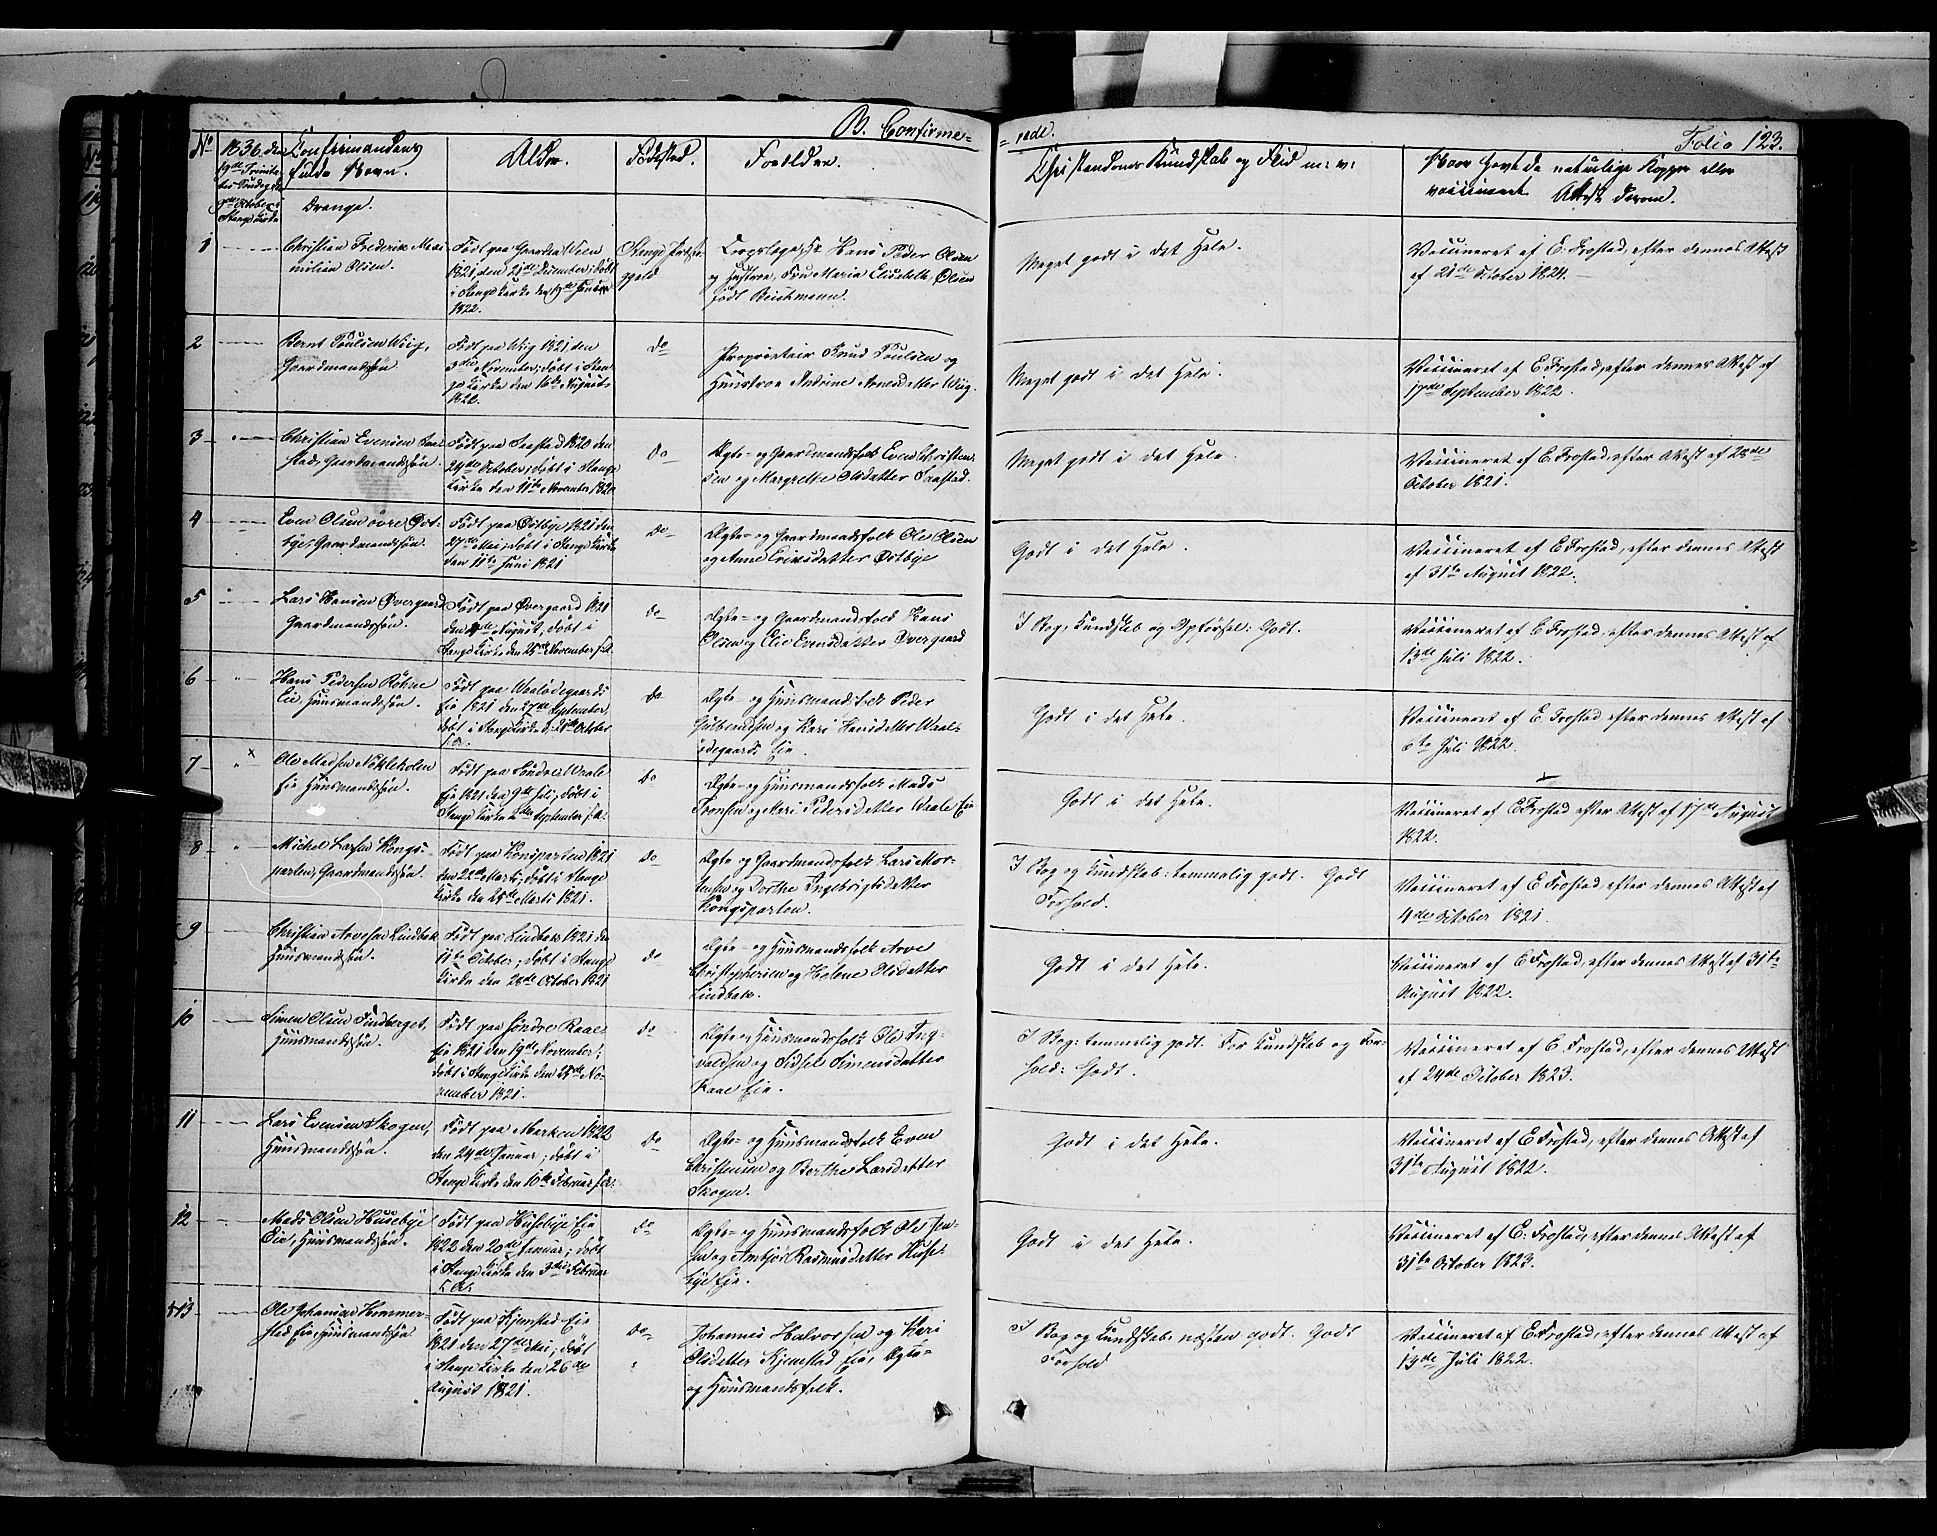 B. Confirme=
=rede.
Folio 123.
No
1836 den
19de Trinita
tis Søndag d.
9de October i
Stange Kirke
Confirmandens
fulde Navn.
Drenge.
Alder.
Fødested.
Forældre.
Christendoms Kundskab og Flid m: v:
Naar havt de naturlige Kopper eller
vaccineret Attest derom.
1
Christian Frederik Maxi
milian Olsen.
Født paa Gaarden Wien
1821 den 21de December; døbt
i Stange Kirke den 19de Januar
1822.
Stange Præste
gjeld
Corpslæge, Hr. Hans Peder Olsen
og Hustroe, Fru Maria Elisabeth Olsen
født Beichmann.
Meget godt i det Hele.
Vaccineret af E. Frostad, efter dennes Attest
af 21de October 1824.
2
Bernt Poulsen Wiig,
Gaardmandssøn
Født paa Wiig 1821 den
3die November; døbt i Stan
ge Kirke den 16de Augusti
1822.
Do
Proprietair Knud Poulsen og
Huustroe Andrine Arnesdatter Wiig.
Meget godt i det Hele.
Vaccineret af E. Frostad, efter dennes Attest af
17de September 1822.
3
Christian Evensen Saa
stad, Gaardmandssøn.
Født paa Saastad 1820 den
24de October; døbt i Stange
Kirke den 11te November 1820
Do
Ægte- og Gaardmandsfolk Even Christen
sen og Margrethe Olsdatter Saastad.
Meget godt i det Hele.
Vaccineret af E. Frostad, efter Attest af 20de
October 1821.
4
Even Olsen øvre Øst-
bye, Gaardmandssøn.
Født paa Østbye 1821 den
27de Mai; døbt i Stange Kirke
den 11te Juni 1821
Do
Ægte- og Gaardmandsfolk Ole Olsen
og Anne Eriksdatter Østbye
Godt i det Hele.
Vaccineret af E. Frostad, efter dennes Attest
af 31te August 1822.
5
Lars Hansen Øvergaard
Gaardmandssøn.
Født paa Øvergaard 1821
den 4de August, døbt i
Stange Kirke den 25de November s: A.
Do
Ægte- og Gaardmandsfolk Hans
Olsen og Elie Evensdatter Øvergaard
I Bog, Kundskab og Opførsel: Godt.
Vaccineret af E. Frostad, efter dennes Attest af
13de Juli 1822.
6
Hans Pedersen Røhne
Eie, Huusmandssøn.
Født paa Waalødegaards
Eie 1821 den 27de September,
døbt i Stange Kirke d: 21de October
s: A.
Do
Ægte- og Huusmandsfolk Peder
Gulbrandsen og Kari Hansdatter Waal-
ødegaards Eie.
Godt i det Hele.
Vaccineret af E. Frostad efter dennes Attest af
6te Juli 1822.
7
x
Ole Madsen Nøkleholm
Eie Huusmandssøn.
Født paa Søndre Waale
Eie 1821 den 9de Juli; døbt i
Stange Kirke 2den September s: A:
Do
Ægte- og Huusmandsfolk Mads
Tronsen og Mari Pedersdatter Waale Eie
Godt i det Hele.
Vaccineret af E. Frostad efter Attest af 17de August
1822.
8
Michel Larsen Kongs-
parten, Gaardmandssøn.
Født paa Kongsparten 1821
den 22de Marti; døbt i Stange
Kirke den 25de Marti 1821.
Do
Ægte og Gaardmandsfolk Lars Mor-
tensen og Dorthe Ingebrigtsdatter
Kongsparten.
I Bog og Kundskab: temmelig godt. Godt
Forhold.
Vaccineret af E. Frostad, efter dennes Attest af
4de October 1821.
9
Christian Arvesen Lindbak
Huusmandssøn.
Født paa Lindbak 1821 den
11te October; døbt i Stange
Kirke den 28de October 1821
Do
Ægte- og Huusmandsfolk Arve
Christophersen og Helene Olsdatter
Lindbak.
Godt i det Hele.
Vaccineret af E. Frostad, efter dennes Attest af 31te
August 1822.
10
Simen Olsen Findberget,
Huusmandssøn.
Født paa Søndre Kaae
Eie 1821 den 19de November;
døbt i Stange Kirke den 25de No-
vember 1821.
Do
Ægte og Huusmandsfolk Ole Ing-
valdsen og Sidsel Simensdatter
Kaae Eie.
I Bog: temmelig godt. For Kundskab og For-
hold: Godt.
Vaccineret af E. Frostad, efter dennes Attest
af 24de October 1823.
11
Lars Evensen Skogen,
Huusmandssøn.
Født paa Marken 1822
den 24de Januar; døbt i
Stange Kirke den 10de Februar s: A:
Do
Ægte- og Huusmandsfolk Even
Christensen og Berthe Larsdatter
Skogen.
Godt i det Hele.
Vaccineret af E. Frostad, efter dennes Attest af
31te August 1822.
12
Mads Olsen Husebye
Eie, Huusmandssøn.
Født paa Husebye Eie
1822 den 20de Januar; døbt
i Stange Kirke den 3die Februar
s: A:
Do
Ægte- og Huusmandsfolk Ole Jen-
sen og Anbjør Rasmusdatter Huse-
bye Eie.
Godt i det Hele.
Vaccineret af E. Frostad, efter dennes Attest af
31te October 1823.
13
Ole Johansen Hommer-
stad Eie, Huusmandssøn
Født paa Kjemstad Eie
1821 den 27de Mai; døbt
i Stange Kirke den 26de
August 1821.
Do
Johannes Halvorsen og Kari
Olsdatter Kjemstad Eie, Ægte-
og Huusmandsfolk.
I Bog og Kundskab: næsten godt. Godt
Forhold
Vaccineret af E. Frostad, efter dennes Attest af
19de Juli 1822.